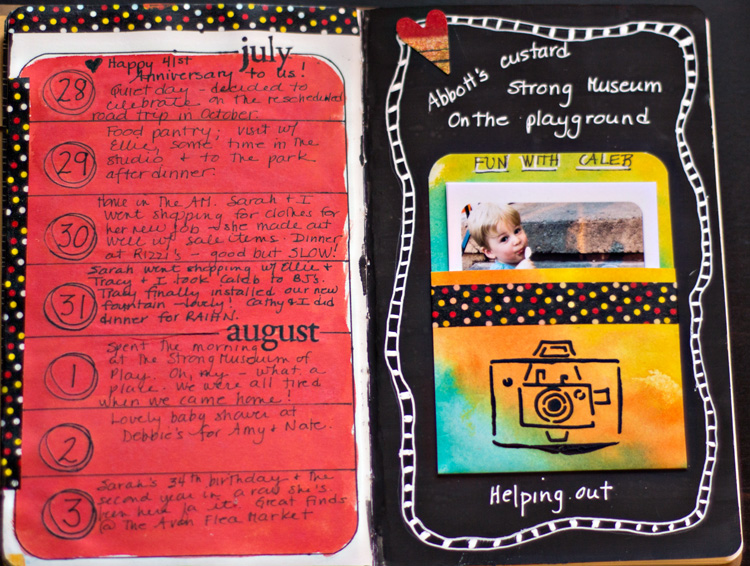 july
Happy 41st
Anniversary to us!
28
Quiet day - decided to
celebrate on the rescheduled
road trip in October.
29
Food pantry; visit w/
Ellie, some time in the
studio & to the park
after dinner.
30
Home in the AM. Sarah & I
went shopping for clothes for
her new job - she made out
well w/ sale items. Dinner
at Rizzi's - good but SLOW!
31
Sarah went shopping w/ Ellie &
Tracy & I took Caleb to BJ's.
Tracy finally installed our new
fountain - lovely! Cathy & I did
dinner for RAIHN.
august
1
Spent the morning
at the Strong Museum of
Play. Oh, my - what a
place. We were all tired
when we came home!
2
Lovely baby shower at
Debbie's for Amy & Nate.
3
Sarah's 34th birthday & the
second year in a row she's
been here for it. Great Finds
@ The Avon Flea Market
Abbott's custard
Strong Museum
On the playground
FUN WITH CALEB
Helping out